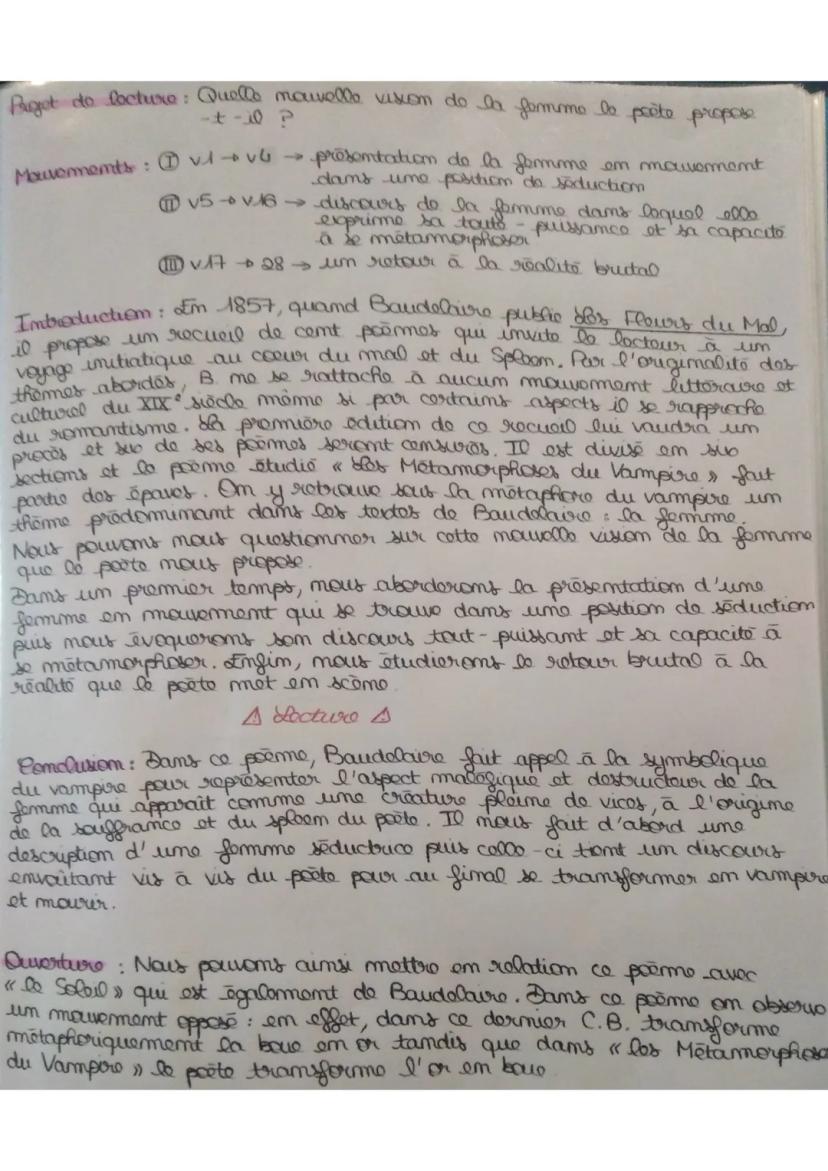 Projet de lecture : Quelle nouvelle vision de la femme le poète propose
-t-il ?
Mouvements : Ⓘ v1 → v4 → présentation de la femme en mouvement
dans une position de séduction
Ⓘⓘ v5 → v16 → discours de la femme dans loquel elle
exprime sa toute-puissance et sa capacité
à se métamorphoser
Ⓘⓘⓘ v17 → 28 → un retour à la réalité brutal
Introduction : En 1857, quand Baudelaire publie Les Fleurs du Mal,
il propose un recueil de cent poèmes qui invite le lecteur à un
voyage initiatique au coeur du mal et du Spleen. Par l'originalité des
thèmes abordés, B. ne se rattache à aucun mouvement littéraire et
culturel du XIXe siècle même si par certains aspects il se rapproche
du romantisme. La première édition de ce recueil lui vaudra un
procès et six de ses poèmes seront censurés. Il est divisé en six
sections et le poème étudié « Les Métamorphoses du Vampire » fait
partie des épaves. On y retrouve sous la métaphore du vampire un
thème prédominant dans les textes de Baudelaire : la femme.
Nous pouvons nous questionner sur cette nouvelle vision de la femme
que le poète nous propose.
Dans un premier temps, nous aborderons la présentation d'une
femme en mouvement qui se trouve dans une position de séduction
puis nous évoquerons son discours tout-puissant et sa capacité à
se métamorphoser. Enfin, nous étudierons le retour brutal à la
réalité que le poète met en scène
⚠ Lecture ⚠
Conclusion : Dans ce poème, Baudelaire fait appel à la symbolique
du vampire pour représenter l'aspect maléfique et destructeur de la
femme qui apparaît comme une créature pleine de vices, à l'origine
de la souffrance et du spleen du poète. Il nous fait d'abord une
description d'une femme séductrice puis celle-ci tient un discours
envoûtant vis à vis du poète pour au final se transformer en vampire
et mourir.
Ouverture : Nous pouvons ainsi mettre en relation ce poème avec
« le Soleil » qui est également de Baudelaire. Dans ce poème on observe
un mouvement opposé : en effet, dans ce dernier C.B. transforme
métaphoriquement la boue en or tandis que dans « les Métamorphose
du Vampire » le poète transforme l'or en boue